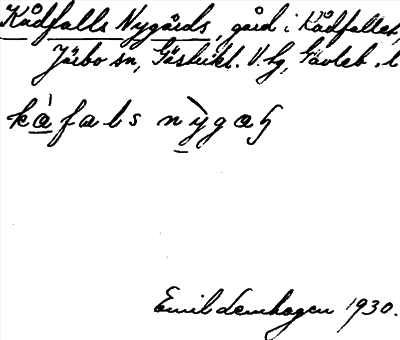 Kådfalls Nygårds, gård i Kådfallet,
Järbo sn, Gästrikl. V. hg, Gävleb. l.
kåfals nỳgaɧ
Emil Lenhagen 1930.